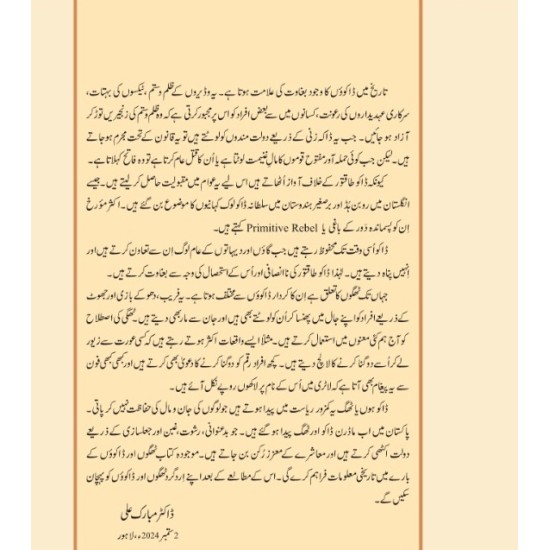 تاریخ میں ڈاکوؤں کا وجود بغاوت کی علامت ہوتا ہے۔ یہ وڈیروں کے ظلم و ستم، ٹیکسوں کی بہتات،
سرکاری عہدیداروں کی رعونت، کسانوں میں سے بعض افراد کو اس پر مجبور کرتی ہے کہ وہ ظلم و ستم کی زنجیریں توڑ کر
آزاد ہو جائیں۔ جب یہ ڈاکہ زنی کے ذریعے دولت مندوں کو لوٹتے ہیں تو یہ قانون کے تحت مجرم ہو جاتے
ہیں۔ لیکن جب کوئی حملہ آور مفتوح قوموں کا مالِ غنیمت لوٹتا ہے یا اُن کا قتلِ عام کرتا ہے تو وہ فاتح کہلاتا ہے۔
کیونکہ ڈاکو طاقتور کے خلاف آواز اُٹھاتے ہیں اس لیے یہ عوام میں مقبولیت حاصل کر لیتے ہیں۔ جیسے
انگلستان میں روبن ہُڈ اور برصغیر ہندوستان میں سلطانہ ڈاکو لوک کہانیوں کا موضوع بن گئے ہیں۔ اکثر مؤرخ
اِن کو پسماندہ دَور کے باغی یا Primitive Rebel کہتے ہیں۔
ڈاکو اُسی وقت تک محفوظ رہتے ہیں جب گاؤں اور دیہاتوں کے عام لوگ اِن سے تعاون کرتے ہیں اور
اُنہیں پناہ دیتے ہیں۔ لہٰذا ڈاکو طاقتور کی ناانصافی اور اُس کے استحصال کی وجہ سے بغاوت کرتے ہیں۔
جہاں تک ٹھگوں کا تعلق ہے اِن کا کردار ڈاکوؤں سے مختلف ہوتا ہے۔ یہ فریب، دھوکے بازی اور جھوٹ
کے ذریعے افراد کو اپنے جال میں پھنسا کر اُن کو لوٹتے بھی ہیں اور جان سے مار بھی دیتے ہیں۔ ٹھگی کی اصطلاح
کو آج ہم کئی معنوں میں استعمال کرتے ہیں۔ مثلاً ایسے واقعات اکثر ہوتے رہتے ہیں کہ کسی عورت سے زیور
لے کر اُسے دوگنا کرنے کا لالچ دیتے ہیں۔ کچھ افراد رقم کو دوگنا کرنے کا دعویٰ بھی کرتے ہیں اور کبھی کبھی فون
سے یہ پیغام بھی آتا ہے کہ لاٹری میں اُس کے نام پر لاکھوں روپے نکل آئے ہیں۔
ڈاکو ہوں یا ٹھگ یہ کمزور ریاست میں پیدا ہوتے ہیں جو لوگوں کی جان و مال کی حفاظت نہیں کر پاتی۔
پاکستان میں اب ماڈرن ڈاکو اور ٹھگ پیدا ہو گئے ہیں۔ جو بدعنوانی، رشوت، غبن اور جعلسازی کے ذریعے
دولت اکٹھی کرتے ہیں اور معاشرے کے معزز رُکن بن جاتے ہیں۔ موجودہ کتاب ٹھگوں اور ڈاکوؤں کے
بارے میں تاریخی معلومات فراہم کرے گی۔ اس کے مطالعے کے بعد اپنے اِردگرد ٹھگوں اور ڈاکوؤں کو پہچان
سکیں گے۔
ڈاکٹر مبارک علی
2 ستمبر 2024ء، لاہور